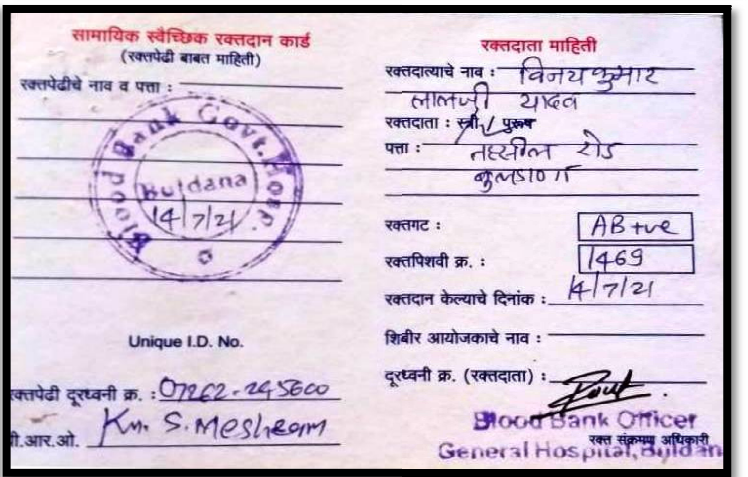 सामायिक स्वैच्छिक रक्तदान कार्ड
(रक्तपेढी बाबत माहिती)
रक्तपेढीचे नाव व पत्ता :
Blood Bank Govt. Hosp.
Buldana
14/7/21
Unique I.D. No.
रक्तपेढी दूरध्वनी क्र. : 07262-245600
पी.आर.ओ. Km. S. Meshram
रक्तदाता माहिती
रक्तदात्याचे नाव : विनयकुमार
लालजी यादव
रक्तदाता : स्त्री / पुरूष
पत्ता : तहसील रोड
बुलडाणा
रक्तगट : AB +ve
रक्तपिशवी क्र. : 1469
रक्तदान केल्याचे दिनांक : 14/7/21
शिबीर आयोजकाचे नाव :
दूरध्वनी क्र. (रक्तदाता) :
Blood Bank Officer
रक्त संक्रमण अधिकारी
General Hospital, Buldan